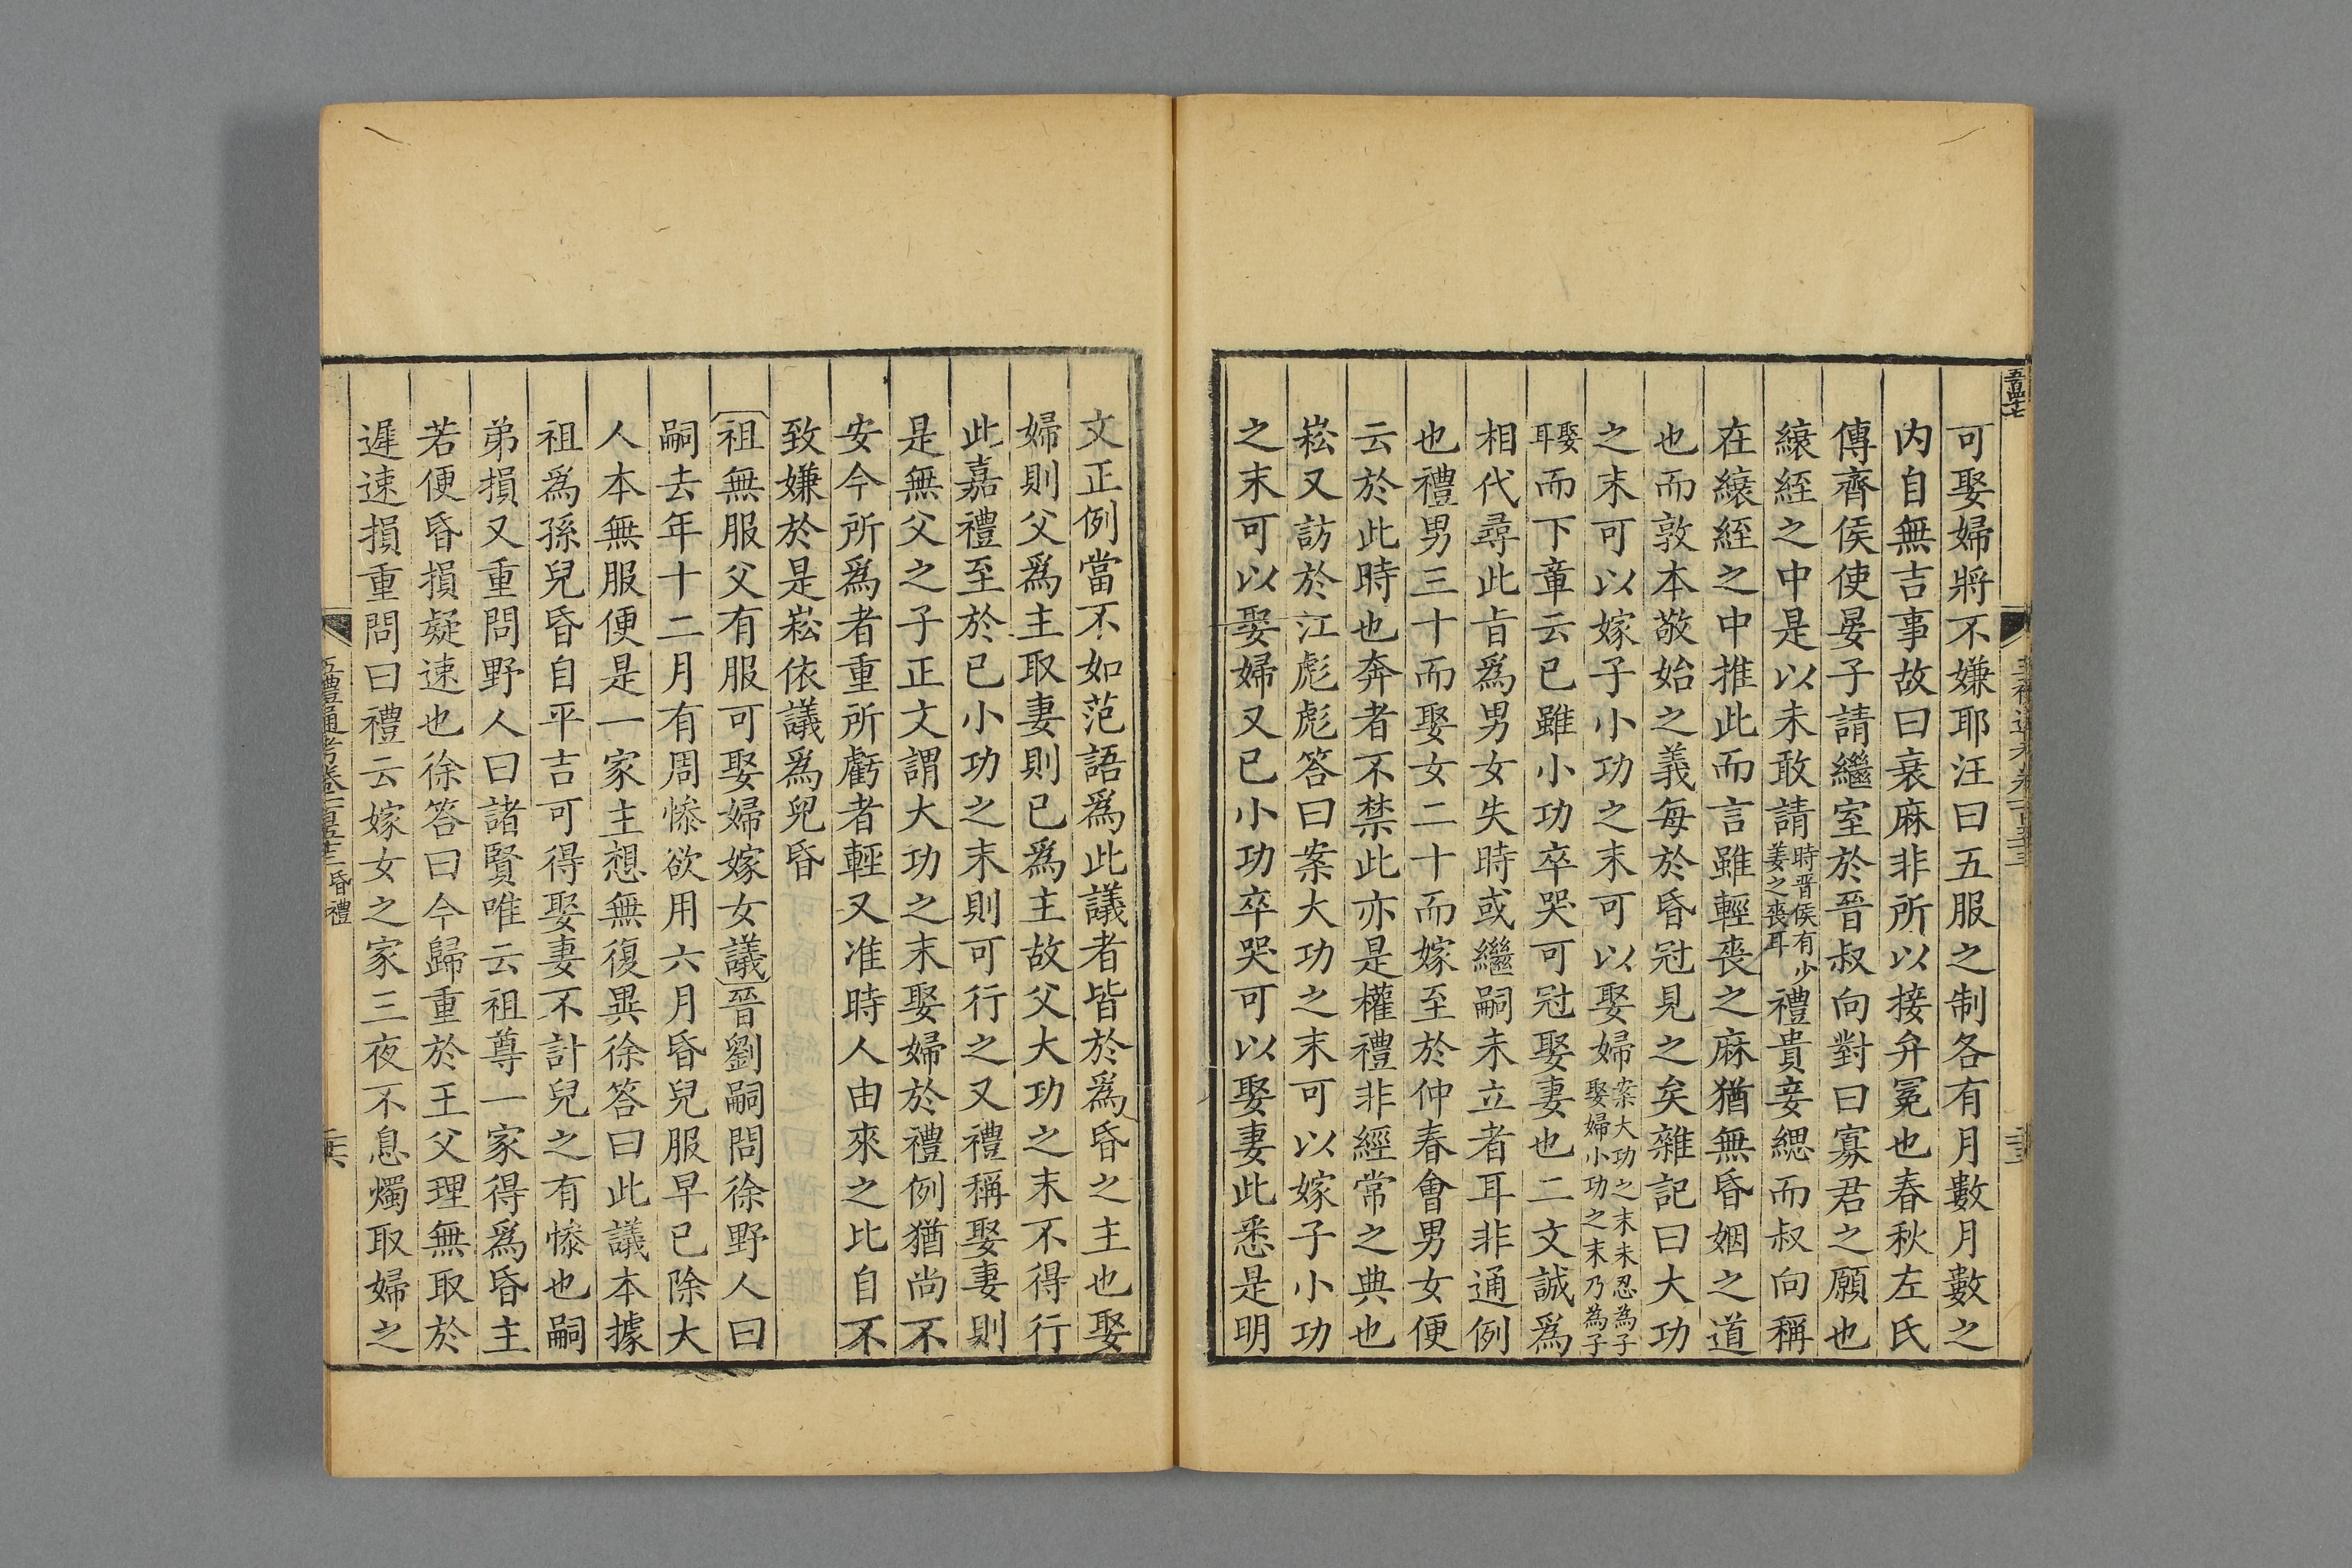 可娶婦將不嫌耶汪曰五服之制各有月數月數之
内自無吉事故曰衰麻非所以接弁冕也春秋左氏
傳齊侯使晏子請繼室於晉叔向對曰寡君之願也
縗絰之中是以未敢請時晉侯有少姜之喪耳禮貴妾緦而叔向稱
在縗絰之中推此而言雖輕喪之麻猶無昏姻之道
也而敦本敬始之義每於昏冠見之矣雜記曰大功
之末可以嫁子小功之末可以娶婦案大功之末未忍為子娶婦小功之末乃為子
娶耳而下章云已雖小功卒哭可冠娶妻也二文誠爲
相代尋此旨爲男女失時或繼嗣未立者耳非通例
也禮男三十而娶女二十而嫁至於仲春會男女便
云於此時也奔者不禁此亦是權禮非經常之典也
崧又訪於江彪彪答曰案大功之末可以嫁子小功
之末可以娶婦又已小功卒哭可以娶妻此悉是明
文正例當不如范語爲此議者皆於爲昏之主也娶
婦則父爲主取妻則已爲主故父大功之末不得行
此嘉禮至於已小功之末則可行之又禮稱娶妻則
是無父之子正文謂大功之末娶婦於禮例猶尚不
安今所爲者重所虧者輕又准時人由來之比自不
致嫌於是崧依議爲兒昏
祖無服父有服可娶婦嫁女議晉劉嗣問徐野人曰
嗣去年十二月有周慘欲用六月昏兒服早已除大
人本無服便是一家主想無復異徐答曰此議本據
祖爲孫兒昏自平吉可得娶妻不計兒之有慘也嗣
弟損又重問野人曰諸賢唯云祖尊一家得爲昏主
若便昏損疑速也徐答曰今歸重於王父理無取於
遲速損重問曰禮云嫁女之家三夜不息燭取婦之
五禮通考卷一百五十三 昏禮